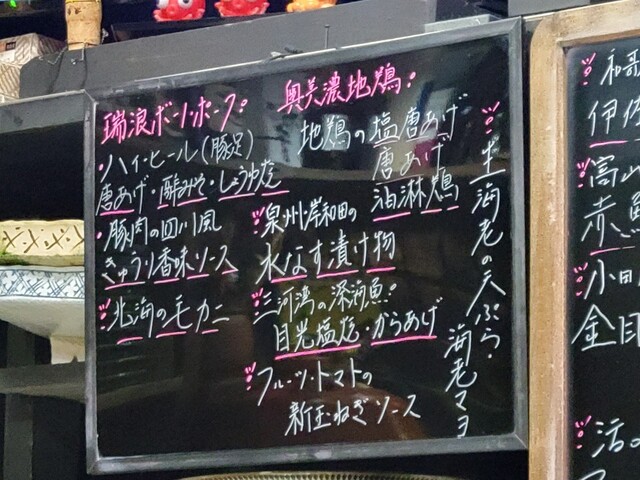 瑞浪ボーノポーク
・ハイ・ヒール(豚足)
唐あげ・酢みそ・しょうゆ焼
・豚肉の四川風
きゅうり香味ソース
北海の毛カニ
奥美濃地鶏
地鶏の塩唐あげ
唐あげ
油淋鶏
泉州・岸和田の
水なす漬け物
三河湾の深海魚
目光塩焼・からあげ
フルーツ・トマトの
新玉ねぎソース
海老の天ぷら・
海老マヨ
和歌
伊佐
高山
赤魚
小田
金目
活の